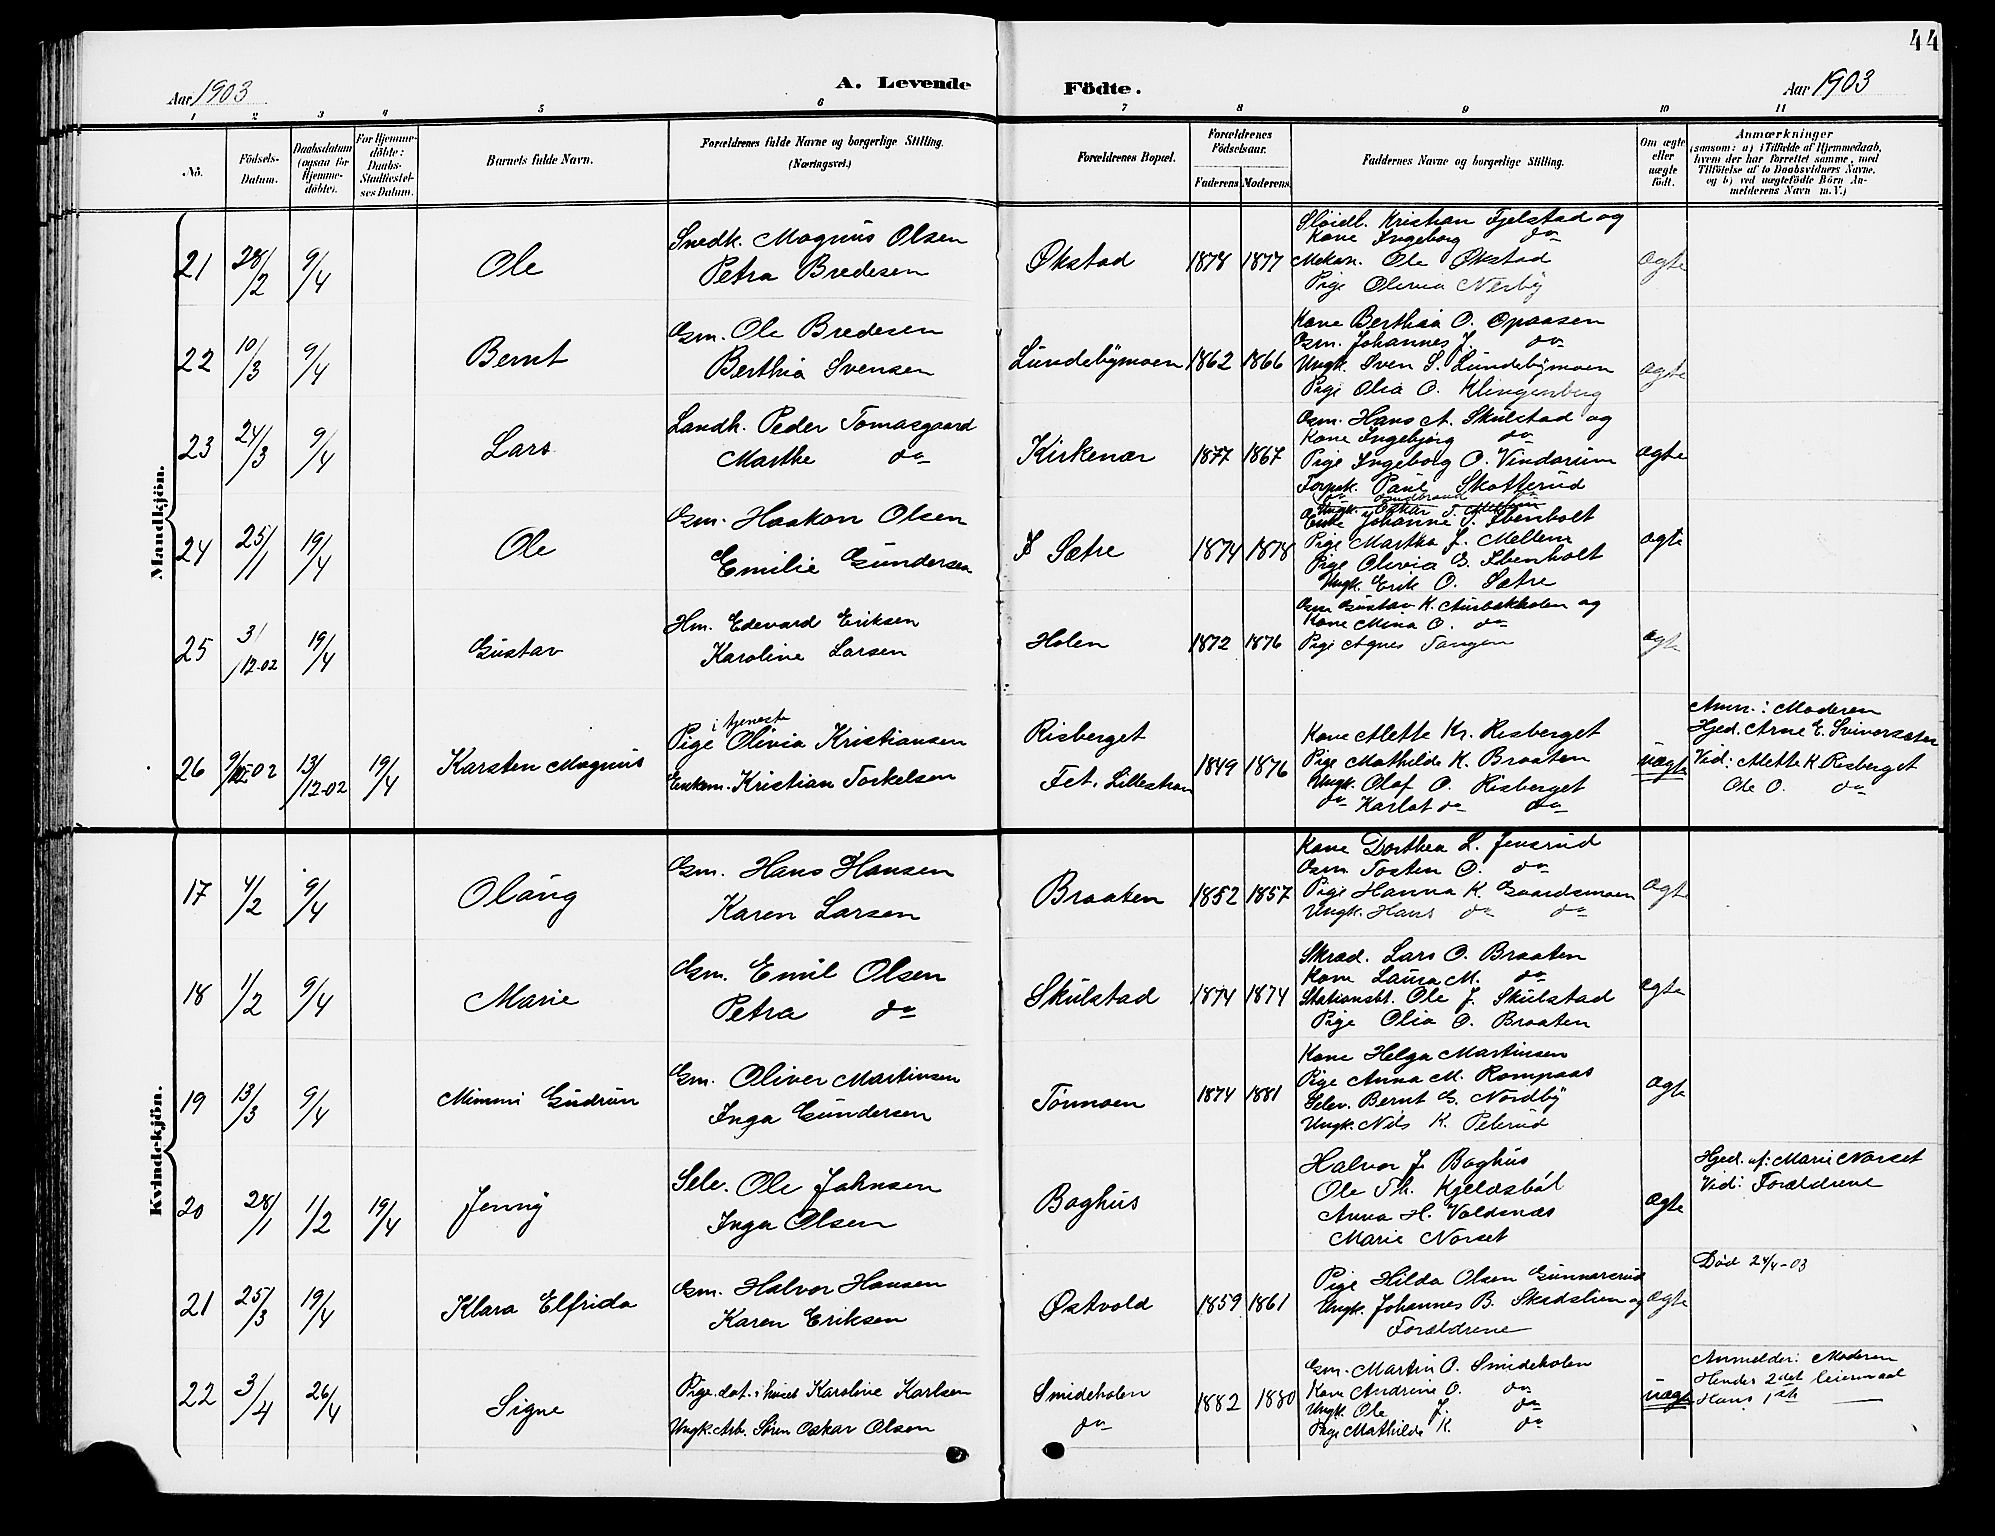 44
Aar 1903
A. Levende Födte.
Aar 1903
1 2 3 4 5 6 7 8 9 10 11
No.
Födsels-Datum.
Daabsdatum (ogsaa for Hjemme-döbte).
For Hjemme-döbte: Daabs-Stadfæstel-ses Datum.
Barnets fulde Navn.
Forældrenes fulde Navne og borgerlige Stilling. (Næringsvei.)
Forældrenes Bopæl.
Forældrenes Födselsaar.
Faderens Moderens
Faddernes Navne og borgerlige Stilling.
Om ægte eller uægte födt.
Anmærkninger
(saasom: a) i Tilfælde af Hjemmedaab,
hvem der har forrettet samme, med
Tilföielse af to Daabsvidners Navne,
og b) ved uægtefödte Börn An-
melderens Navn m. V.)
Mandkjön.
21 28/2 9/4 Ole
Snedk. Magnus Olsen
Petra Bredesen
Økstad 1878 1877
Sløidl. Kristian Fjelstad og
Kone Ingeborg do
Mekan. Ole Økstad
Pige Olivia Nerby
ægte
22 10/3 9/4 Bernt
Gm. Ole Bredesen
Berthia Svensen
Lundebymoen 1862 1866
Kone Berthia O. Opaasen
Gm. Johannes J. do
Ungk. Sven S. Lundebymoen
Pige Olia O. Klingenberg
ægte
23 24/3 9/4 Lars
Landh. Peder Tomasgaard
Marthe do
Kirkenær 1877 1867
Gm. Hans A. Skulstad og
Kone Ingebjørg do
Pige Ingeborg O. Vindorum
Forpak. Paul Skotterud
ægte
24 25/1 19/4 Ole
Gm. Haakon Olsen
Emilie Gundersen
Sætre 1874 1878
Enke Johanne T. Ibenholt
Pige Martha J. Mellem
Pige Olivia G. Ibenholt
Ungk. Erik O. Sætre
ægte
25 3/12-02 19/4 Gustav
Hm. Edevard Eriksen
Karoline Larsen
Holen 1872 1876
Gm Gustav K. Aurbakholen og
Kone Mina O. do
Pige Agnes Tangen
ægte
26 13/12-02 19/4 Karsten Magnus
i tjeneste
Pige Olivia Kristiansen
Enkem. Kristian Torkelsen
Risberget
Fet, Lillestrøm 1849 1876
Kone Alette Kr. Risberget
Pige Mathilde K. Braaten
Ungk. Olaf O. Risberget
do Karlot do do
uægte
Anm.: Moderen
Hjed. Arne E.
Vid: Alette K Risberget
Ole O. do
Kvindekjön.
17 4/2 9/4 Olaug
Gm. Hans Hansen
Karen Larsen
Braaten 1852 1857
Kone Dorthea L. Jensrud
Gm Tosten O. do
Pige Hanna K. Gaardsmoen
Ungk. Hans do do
ægte
18 1/2 9/4 Marie
Gm. Emil Olsen
Petra do
Skulstad 1874 1874
Skræd. Lars O. Braaten
Kone Laura M. do
Stationsbt. Ole J. Skulstad
Pige Olia O. Braaten
ægte
19 13/3 9/4 Mimmi Gudrun
Gm. Oliver Martinsen
Inga Gundersen
Tørmoen 1874 1881
Kone Helga Martinsen
Pige Anna M. Rompaas
Selv. Bernt G. Nordby
Ungk. Nils K. Peterud
ægte
20 28/1 1/2 19/4 Jenny
Selv. Ole Johnsen
Inga Olsen
Baghus
Halvor J. Baghus
Ole Th. Kjeldsbøl
Anna H. Valdenæs
Marie Norset
ægte
Hjed. af: Marie Norset
Vid: Forældrene
21 25/3 19/4 Klara Elfrida
Gm. Halvor Hansen
Karen Eriksen
Østvold 1859 1861
Pige Hilda Olsen Gunnarsrud
Ungk. Johannes B. Skadslien og
Forældrene
ægte
Død 24/4-03
22 3/4 26/4 Signe
Pige. dat. i huset Karoline Karlsen
Ungk. Arb. Søren Oskar Olsen
Smideholen
do 1882 1880
Gm. Martin O. Smideholen
Kone Andrine O. do
Ungk. Ole J. do
Pige Mathilde K. do
uægte
Anmelder: Moderen
Hendes 2det leiermaal
Hans 1ste —